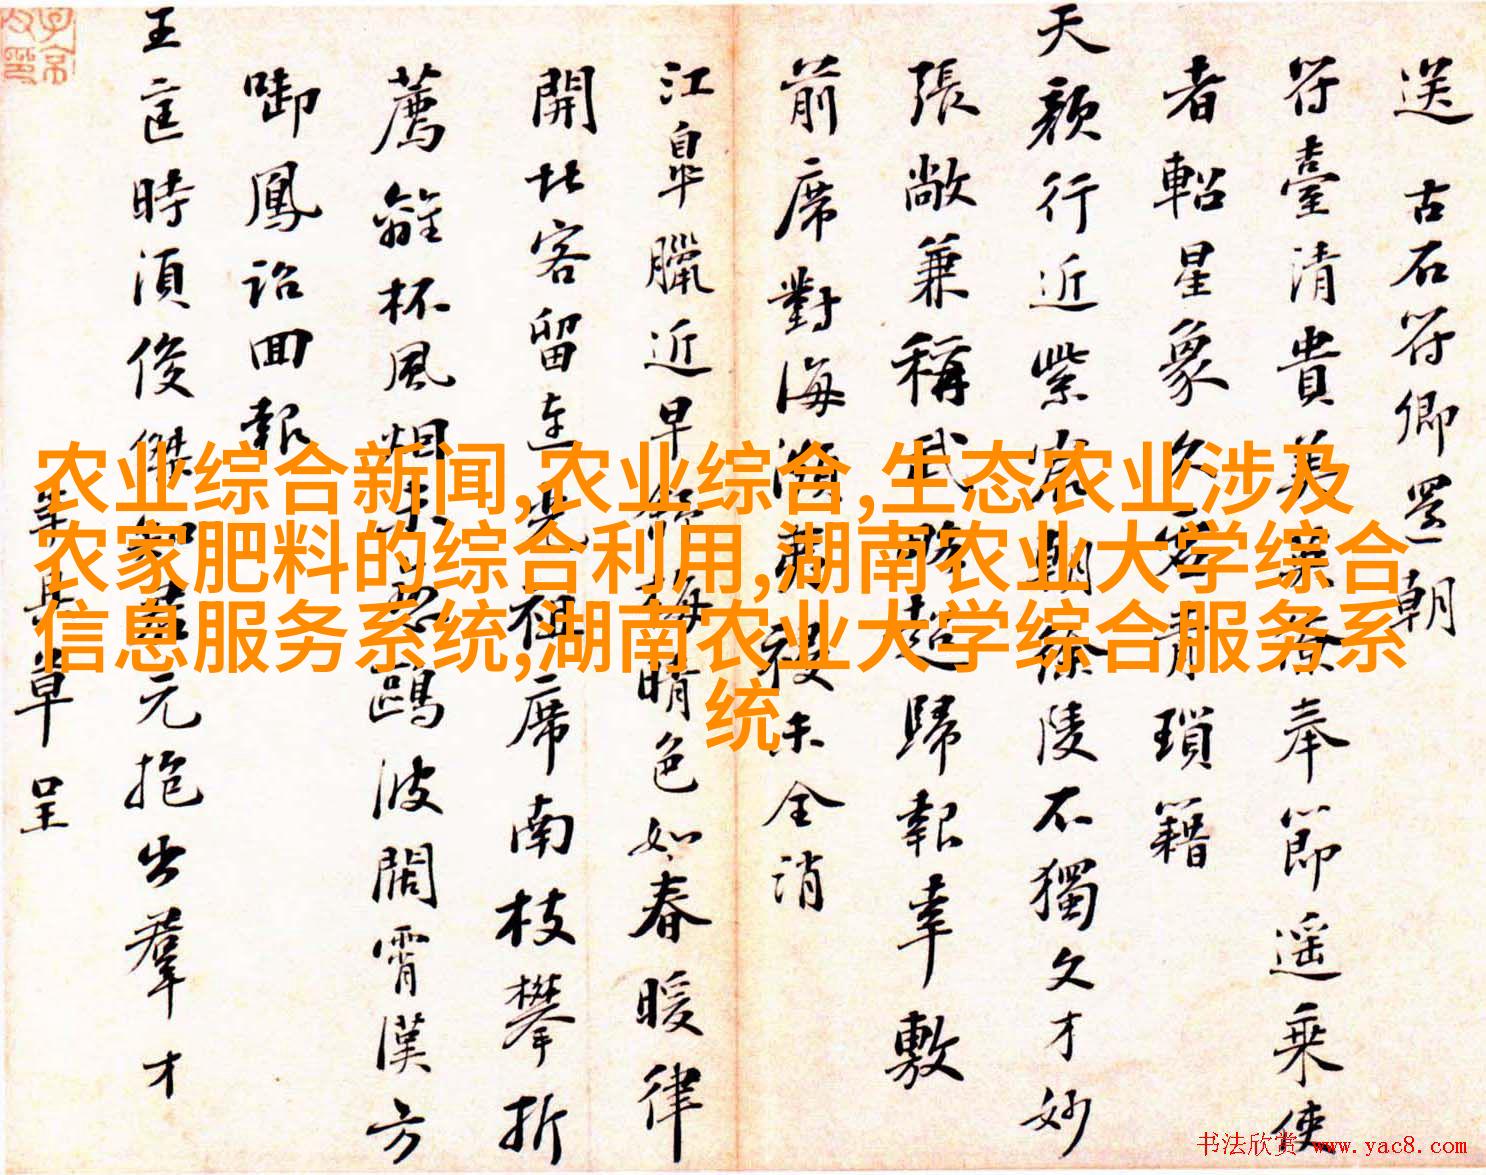 送 古石符卿還朝
符臺清貴美寮奉節遥乘使
者軺星象久客青瑣籍
天顏行近紫宸朝徐陵不獨文才妙
張敞兼稱武略超歸報幸敷
前席對海濱萬祲未全消
江皐臘近早舒梅晴色如春暖律
開北客留連見祖席南枝攀折
薦離杯風烟未忘鷗波闊霄漢方
啣鳳詔回報
王匡時須俊傑知君元抱出羣才
草呈
农业综合新闻,农业综合,生态农业涉及
农家肥料的综合利用,湖南农业大学综合
信息服务系统,湖南农业大学综合服务系
统
书法欣赏 www.yac8.com